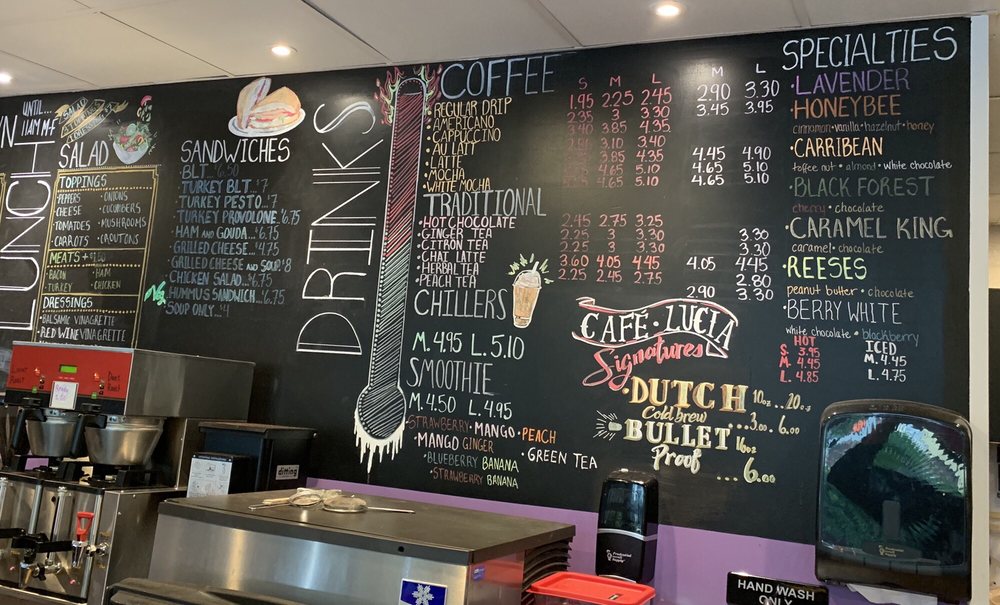 UNTIL...
11AM M-F
LUNCH
SALAD
TOPPINGS
PEPPERS • ONIONS
CHEESE • CUCUMBERS
TOMATOES • MUSHROOMS
CARROTS • CROUTONS
MEATS + $1.50
BACON • HAM
TURKEY • CHICKEN
DRESSINGS
BALSAMIC VINAGRETTE
RED WINE VINAGRETTE
SANDWICHES
BLT...$6.50
TURKEY BLT...$7
TURKEY PESTO...$7
TURKEY PROVOLONE...$6.75
HAM AND GOUDA...$6.75
GRILLED CHEESE...$4.75
GRILLED CHEESE AND SOUP...$8
CHICKEN SALAD...$6.75
HUMMUS SANDWICH...$6
SOUP ONLY...$4
DRINKS
COFFEE
S M L M L
REGULAR DRIP 1.95 2.25 2.45 2.90 3.30
AMERICANO 2.35 3 3.30 3.45 3.95
CAPPUCCINO 3.40 3.85 4.35
AU LAIT 3.10 3.40
LATTE 3.85 4.35 4.45 4.90
MOCHA 4.65 5.10 4.65 5.10
WHITE MOCHA 4.65 5.10 4.65 5.10
TRADITIONAL
HOT CHOCOLATE 2.45 2.75 3.25
GINGER TEA 2.25 3 3.30 3.30
CITRON TEA 2.25 3 3.30 3.30
CHAI LATTE 3.60 4.05 4.45 4.05 4.45
HERBAL TEA 2.25 2.45 2.75 2.80
PEACH TEA 2.90 3.30
CHILLERS
M. 4.95 L. 5.10
SMOOTHIE
M. 4.50 L. 4.95
STRAWBERRY • MANGO • PEACH
• MANGO GINGER • GREEN TEA
• BLUEBERRY BANANA
• STRAWBERRY BANANA
CAFÉ • LUCIA
Signatures
DUTCH 10oz .. 20oz
Cold brew ...3.00 .. 6.00
BULLET 16oz
Proof .... 6.00
SPECIALTIES
• LAVENDER
• HONEYBEE
cinnamon • vanilla • hazelnut • honey
• CARRIBEAN
toffee nut • almond • white chocolate
• BLACK FOREST
cherry • chocolate
• CARAMEL KING
caramel • chocolate
• REESES
peanut butter • chocolate
• BERRY WHITE
white chocolate • blackberry
HOT ICED
S. 3.95 M. 4.45
M. 4.45 L. 4.75
L. 4.85
Dark
Roast
Ready
ditting
HAND WASH
ONLY